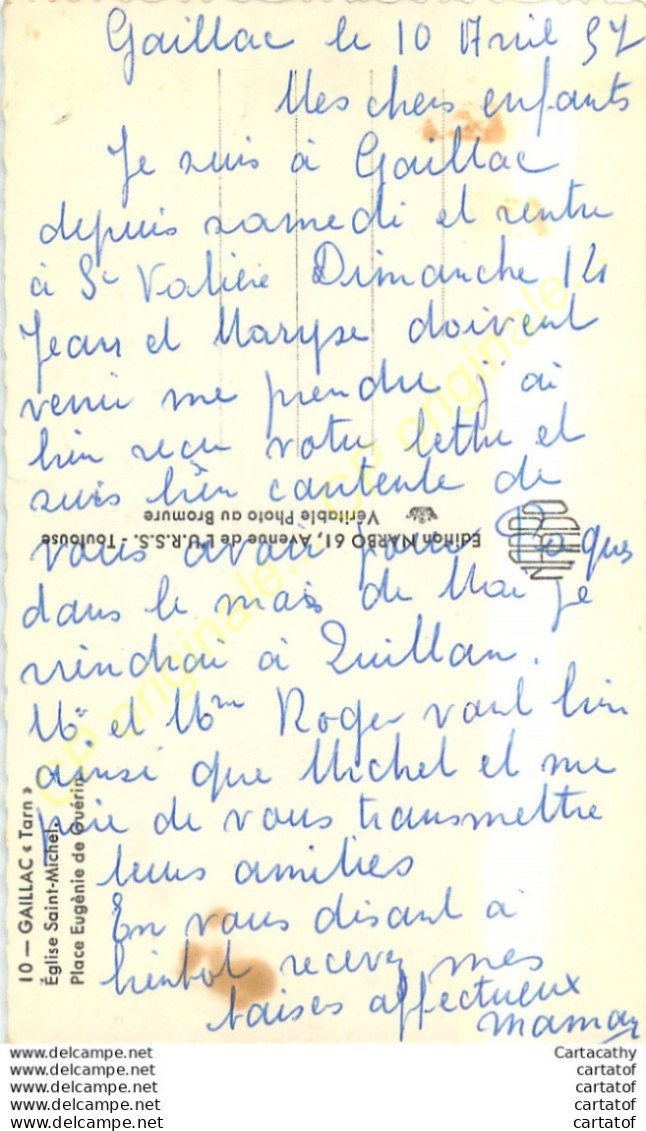 Gaillac le 10 Avril 57
Mes chers enfants
Je suis à Gaillac
depuis samedi et rentre
à St Valière Dimanche 14
Jean et Maryse doivent
venir me prendre j'ai
bien reçu votre lettre et
suis bien contente de
vous avoir pour Pâques
dans le mois de Mai je
viendrai à Quillan.
Mr et Mme Roger vont bien
ainsi que Michel et me
prie de vous transmettre
leurs amitiés
En vous disant à
bientot recevez mes
baises affectueux
maman
Edition NARBO 61, Avenue de l'U.R.S.S. - Toulouse
Véritable Photo au Bromure
NARBO
10 — GAILLAC « Tarn »
Église Saint-Michel.
Place Eugénie de Guérin
CP originale...
CP originale...
www.delcampe.net
www.delcampe.net
www.delcampe.net
www.delcampe.net
www.delcampe.net
Cartacathy
cartatof
cartatof
cartatof
cartatof